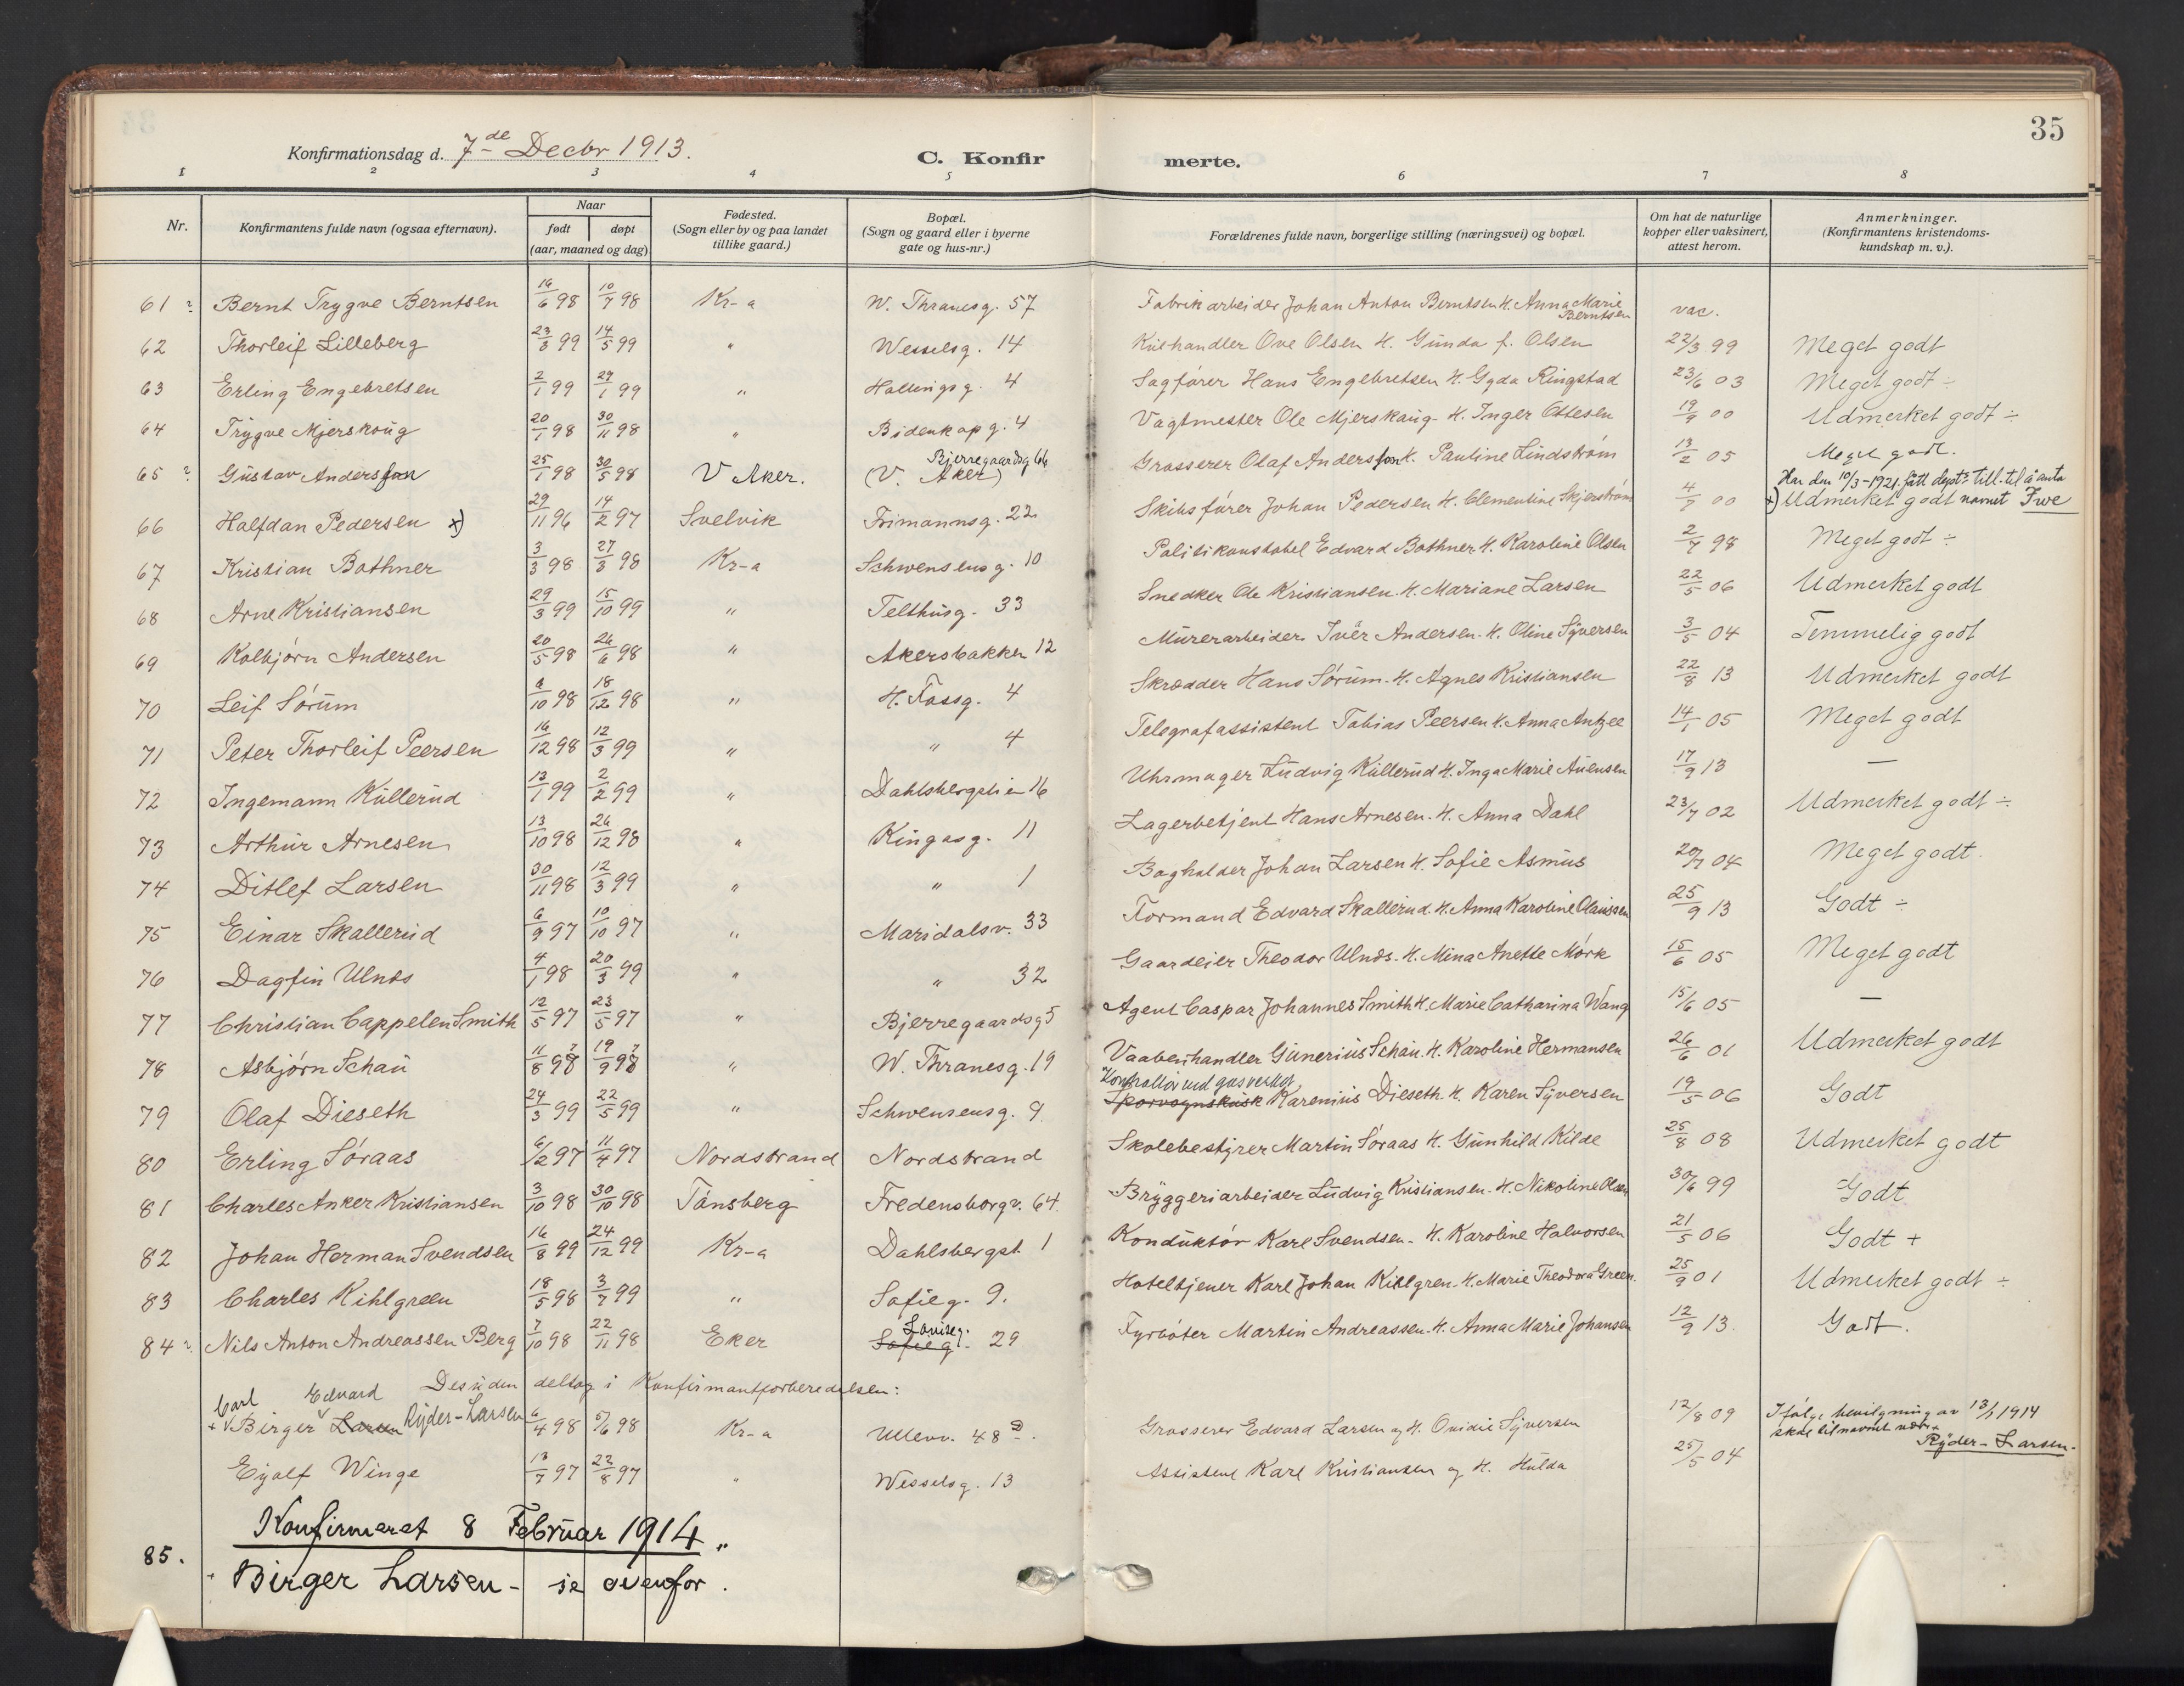 35
Konfirmationsdag d. 7de Decbr 1913.
C. Konfirmerte.
1 2 3 4 5 6 7 8
Nr.
Konfirmantens fulde navn (ogsaa efternavn).
Naar
født døpt
(aar, maaned og dag)
Fødested.
(Sogn eller by og paa landet
tillike gaard.)
Bopæl.
(Sogn og gaard eller i byerne
gate og hus-nr.)
Forældrenes fulde navn, borgerlige stilling (næringsvei) og bopæl.
Om hat de naturlige
kopper eller vaksinert,
attest herom.
Anmerkninger.
(Konfirmantens kristendoms-
kundskap m. v.).
61 Bernt Trygve Berntsen 16/6 98 10/7 98 Kr-a W. Thranesg. 57 Fabrikarbeider Johan Anton Berntsen H. Anna Marie Berntsen vac.
62 Thorleif Lilleberg 23/3 99 14/5 99 " Wesselsg. 14 Ove Olsen H. Gunda f. Olsen 22/3 99 Meget godt
63 Erling Engebretsen 2/1 99 29/1 99 " Hallingsg. 4 Sagfører Hans Engebretsen H. Gyda Ringstad 23/6 03 Meget godt ÷
64 Trygve Mjerskoug 20/1 98 30/11 98 " Bidenkapg. 4 Vagtmester Ole Mjerskaug H. Inger Ottesen 19/9 00 Udmerket godt ÷
65 Gustav Andersson 25/1 98 30/5 98 V Aker. Bjerregaardsg 66 (V. Aker) Grosserer Olaf Andersson H. Pauline Lindstrøm 13/2 05 Meget godt.
66 Halfdan Pedersen x) 29/11 96 14/2 97 Svelvik Frimannsg. 22 Skibsfører Johan Pedersen H. Clementine Skjerstrøm 4/7 00 Udmerket godt
x) Har den 10/3-1921 fått dept.s till. til å anta navnet Iwe
67 Kristian Bothner 3/3 98 27/3 98 Kr-a Schwensensg. 10 Politikonstabel Edvard Bothner H. Karoline Olsen 2/7 98 Meget godt ÷
68 Arne Kristiansen 29/3 99 15/10 99 " Telthusg. 33 Snedker Ole Kristiansen. H. Mariane Larsen 22/5 06 Udmerket godt
69 Kolbjørn Andersen 20/5 98 26/6 98 " Akersbakken 12 Murerarbeider Iver Andersen. H. Oline Syversen 3/5 04 Temmelig godt
70 Leif Sørum 9/10 98 18/12 98 " H. Fossg. 4 Skrædder Hans Sørum. H. Agnes Kristiansen 22/8 13 Udmerket godt
71 Peter Thorleif Peersen 16/12 98 12/3 99 " " 4 Telegrafassistent Tobias Peersen H. Anna Antzee 14/1 05 Meget godt
72 Ingemann Kullerud 13/1 99 2/2 99 " Dahlsbergstien 16 Uhrmager Ludvig Kullerud H. Inga Marie Auensen 17/9 13 —
73 Arthur Arnesen 13/10 98 26/12 98 " Ringasg. 11 Lagerbetjent Hans Arnesen. H. Anna Dahl 23/7 02 Udmerket godt ÷
74 Ditlef Larsen 30/11 98 12/3 99 " " 1 Bogholder Johan Larsen H. Sofie Asmus 20/7 04 Meget godt.
75 Einar Skallerud 6/9 97 10/10 97 " Maridalsv. 33 Formand Edvard Skallerud. H. Anna Karoline Olaussen 25/9 13 Godt ÷
76 Dagfin Ulnds 4/1 98 20/3 99 " " 32 Gaardeier Theodor Ulnds. H. Mina Anette Mørk 15/6 05 Meget godt
77 Christian Cappelen Smith 12/5 97 23/5 97 " Bjerregaardsg 5 Agent Caspar Johannes Smith H. Marie Catharina Wang 15/6 05 —
78 Asbjørn Schau 11/8 98 19/9 98 " W. Thranesg. 19 Vaabenhandler Gunerius Schau. H. Karoline Hermansen 26/6 01 Udmerket godt
79 Olaf Dieseth 24/3 99 22/5 99 " Schwensensg. 9. Kontrollør ved gasverket Sporvognskusk Karenius Dieseth H. Karen Syversen 19/5 06 Godt
80 Erling Søraas 6/2 97 11/4 97 Nordstrand Nordstrand Skolebestyrer Martin Søraas H. Gunhild Kilde 25/8 08 Udmerket godt
81 Charles Anker Kristiansen 3/10 98 30/10 98 Tønsberg Fredensborgv. 64. Bryggeriarbeider Ludvig Kristiansen. H. Nikoline Olsen 30/6 99 Godt
82 Johan Herman Svendsen 16/8 99 24/12 99 Kr-a Dahlsbergst. 1 Konduktør Karl Svendsen. H. Karoline Halvorsen 21/5 06 Godt +
83 Charles Kihlgreen 18/5 98 3/7 99 " Sofieg. 9. Hoteltjener Karl Johan Kihlgren. H. Marie Theodora Green. 25/9 01 Udmerket godt ÷
84 Nils Anton Andreassen Berg 7/10 98 22/11 98 Eker Louiseg. Sofieg. 29 Fyrbøter Martin Andreassen. H. Anna Marie Johansen 12/9 13. Godt.
Desuden deltog i Konfirmantforberedelsen:
Carl Edvard
+ Birger Larsen Ryder-Larsen 6/4 98 5/6 98 Kr-a Ullevv. 48 D. Grosserer Edvard Larsen og H. Ovidie Syversen 12/8 09 Ifølge bevilgning av 13/1 1914
skal tilnavnet være
Ryder-Larsen.
Eyolf Winge 13/7 97 22/8 97 " Wesselsg. 13 Assistent Karl Kristiansen og H. Hulda 25/5 04
Konfirmeret 8 Februar 1914 "
85. Birger Larsen - se ovenfor.